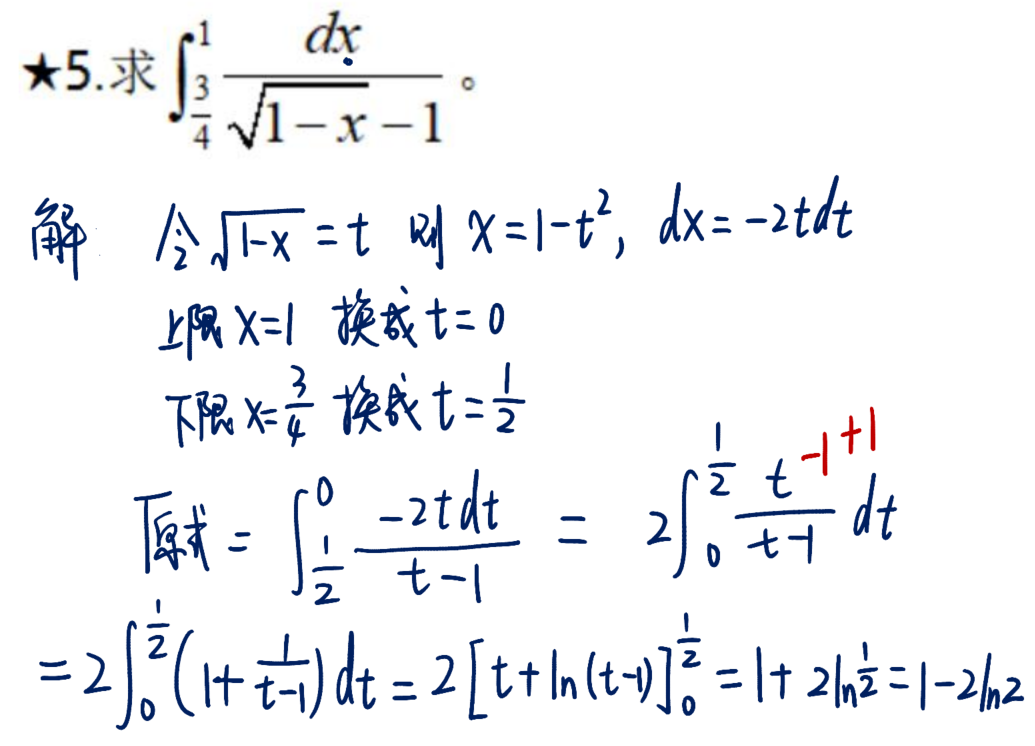 ★5.求 ∫_{3/4}^{1} dx/(√(1-x) - 1) 。
解 令 √(1-x) = t 则 x = 1-t², dx = -2tdt
上限 x=1 换成 t = 0
下限 x=3/4 换成 t = 1/2
原式 = ∫_{1/2}^{0} -2tdt/(t-1) = 2∫_{0}^{1/2} (t-1+1)/(t-1) dt
= 2∫_{0}^{1/2} (1+1/(t-1)) dt = 2[t+ln(t-1)]_{0}^{1/2} = 1+2ln 1/2 = 1-2ln2